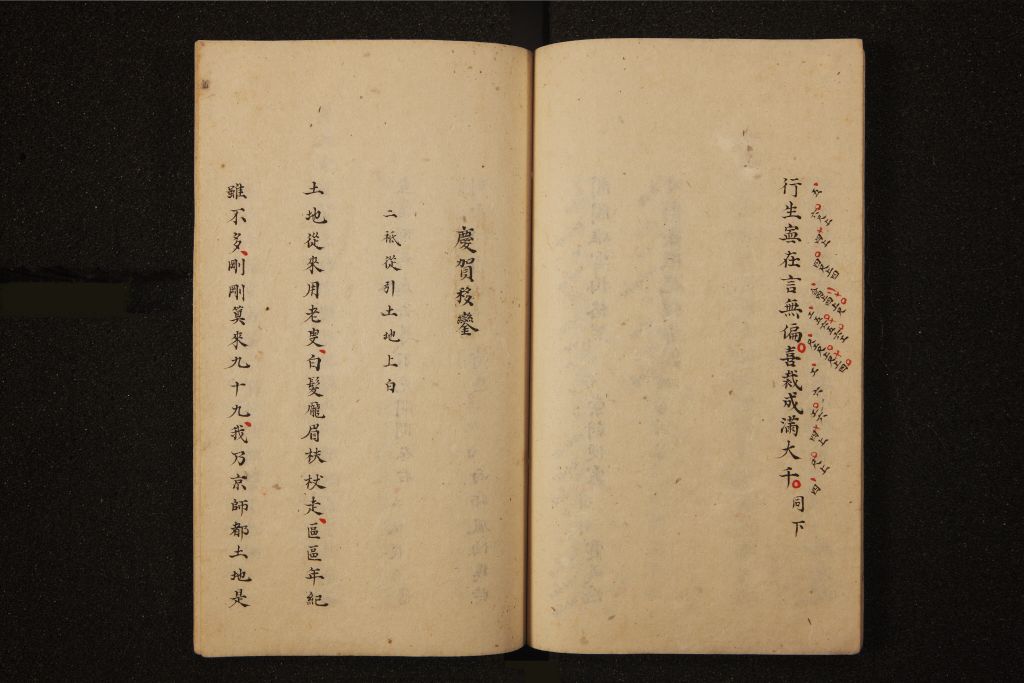 行生寔在言無偏喜裁成滿大千同下
慶賀移鑾
二祗從引土地上白
土地從來用老叟白髮龐眉扶杖走區區年紀
雖不多剛剛算來九十九我乃京師都土地是